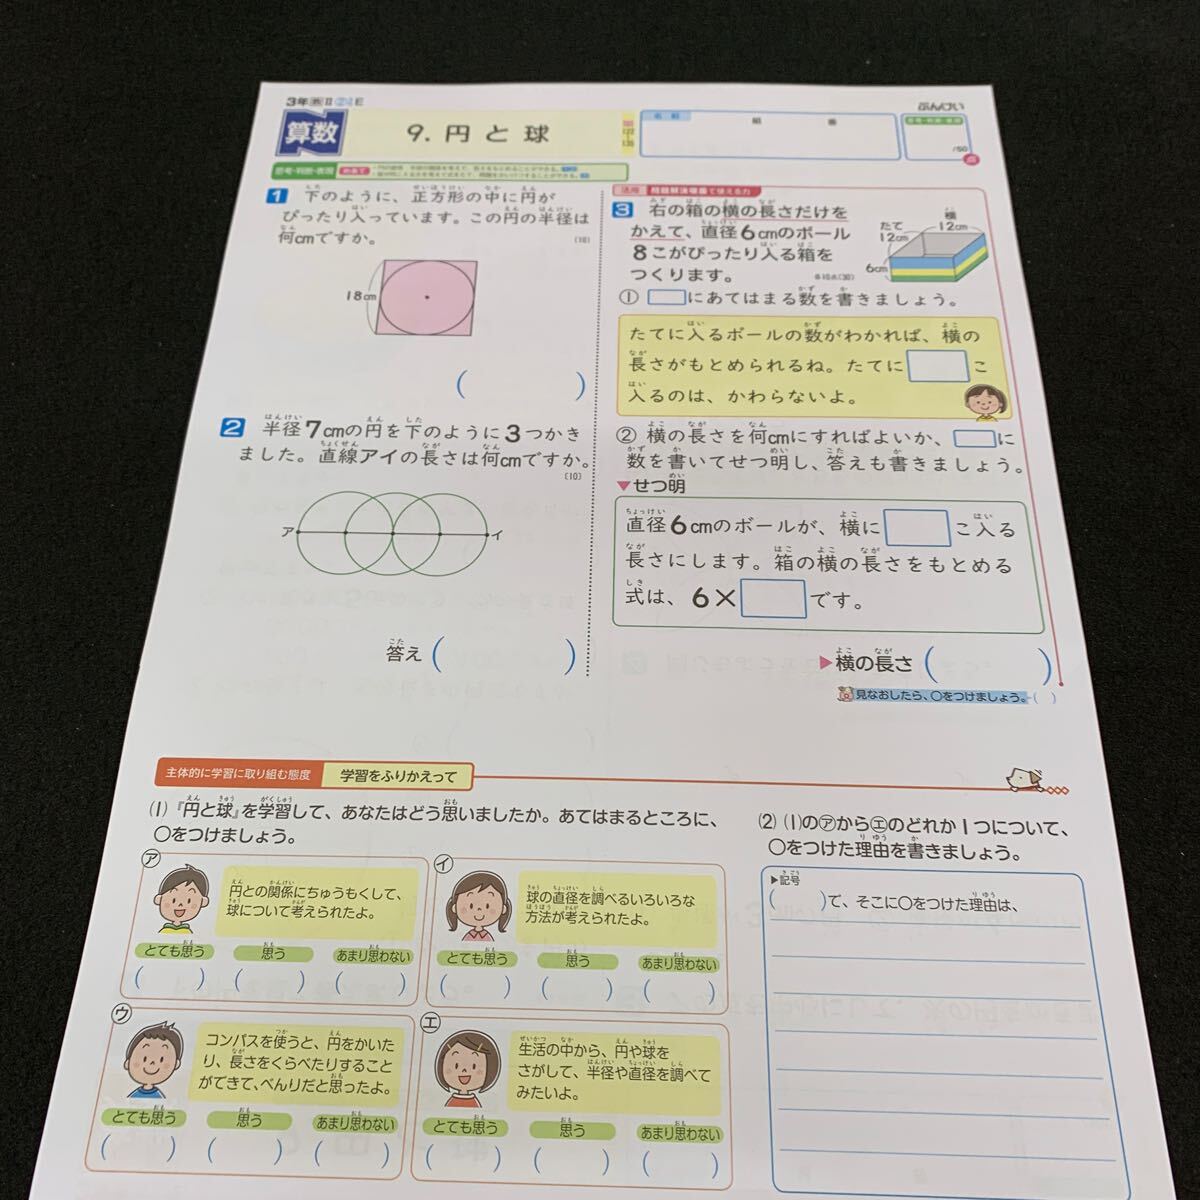 3年
ぶんけい
算数
9. 円と球
名前
組
番
思考・判断・表現
/50
点
思考・判断・表現
めあて
1 下のように、正方形の中に円が
ぴったり入っています。この円の半径は
何cmですか。
(10)
18cm
( )
2 半径7cmの円を下のように3つかき
ました。直線アイの長さは何cmですか。
(10)
ア
イ
答え ( )
活用 問題解決場面で使える力
3 右の箱の横の長さだけを
かえて、直径6cmのボール
8こがぴったり入る箱を
つくります。
たて
12cm
横
12cm
6cm
① □にあてはまる数を書きましょう。
たてに入るボールの数がわかれば、横の
長さがもとめられるね。たてに□こ
入るのは、かわらないよ。
② 横の長さを何cmにすればよいか、□に
数を書いてせつ明し、答えも書きましょう。
▼せつ明
直径6cmのボールが、横に□こ入る
長さにします。箱の横の長さをもとめる
式は、6×□です。
▶横の長さ ( )
見なおしたら、○をつけましょう。( )
主体的に学習に取り組む態度
学習をふりかえって
(1)『円と球』を学習して、あなたはどう思いましたか。あてはまるところに、
○をつけましょう。
㋐
円との関係にちゅうもくして、
球について考えられたよ。
とても思う 思う あまり思わない
( ) ( ) ( )
㋑
球の直径を調べるいろいろな
方法が考えられたよ。
とても思う 思う あまり思わない
( ) ( ) ( )
㋒
コンパスを使うと、円をかいた
り、長さをくらべたりすること
ができて、べんりだと思ったよ。
とても思う 思う あまり思わない
( ) ( ) ( )
㋓
生活の中から、円や球を
さがして、半径や直径を調べて
みたいよ。
とても思う 思う あまり思わない
( ) ( ) ( )
(2) (1)の㋐から㋓のどれか1つについて、
○をつけた理由を書きましょう。
▶記号
( )で、そこに○をつけた理由は、